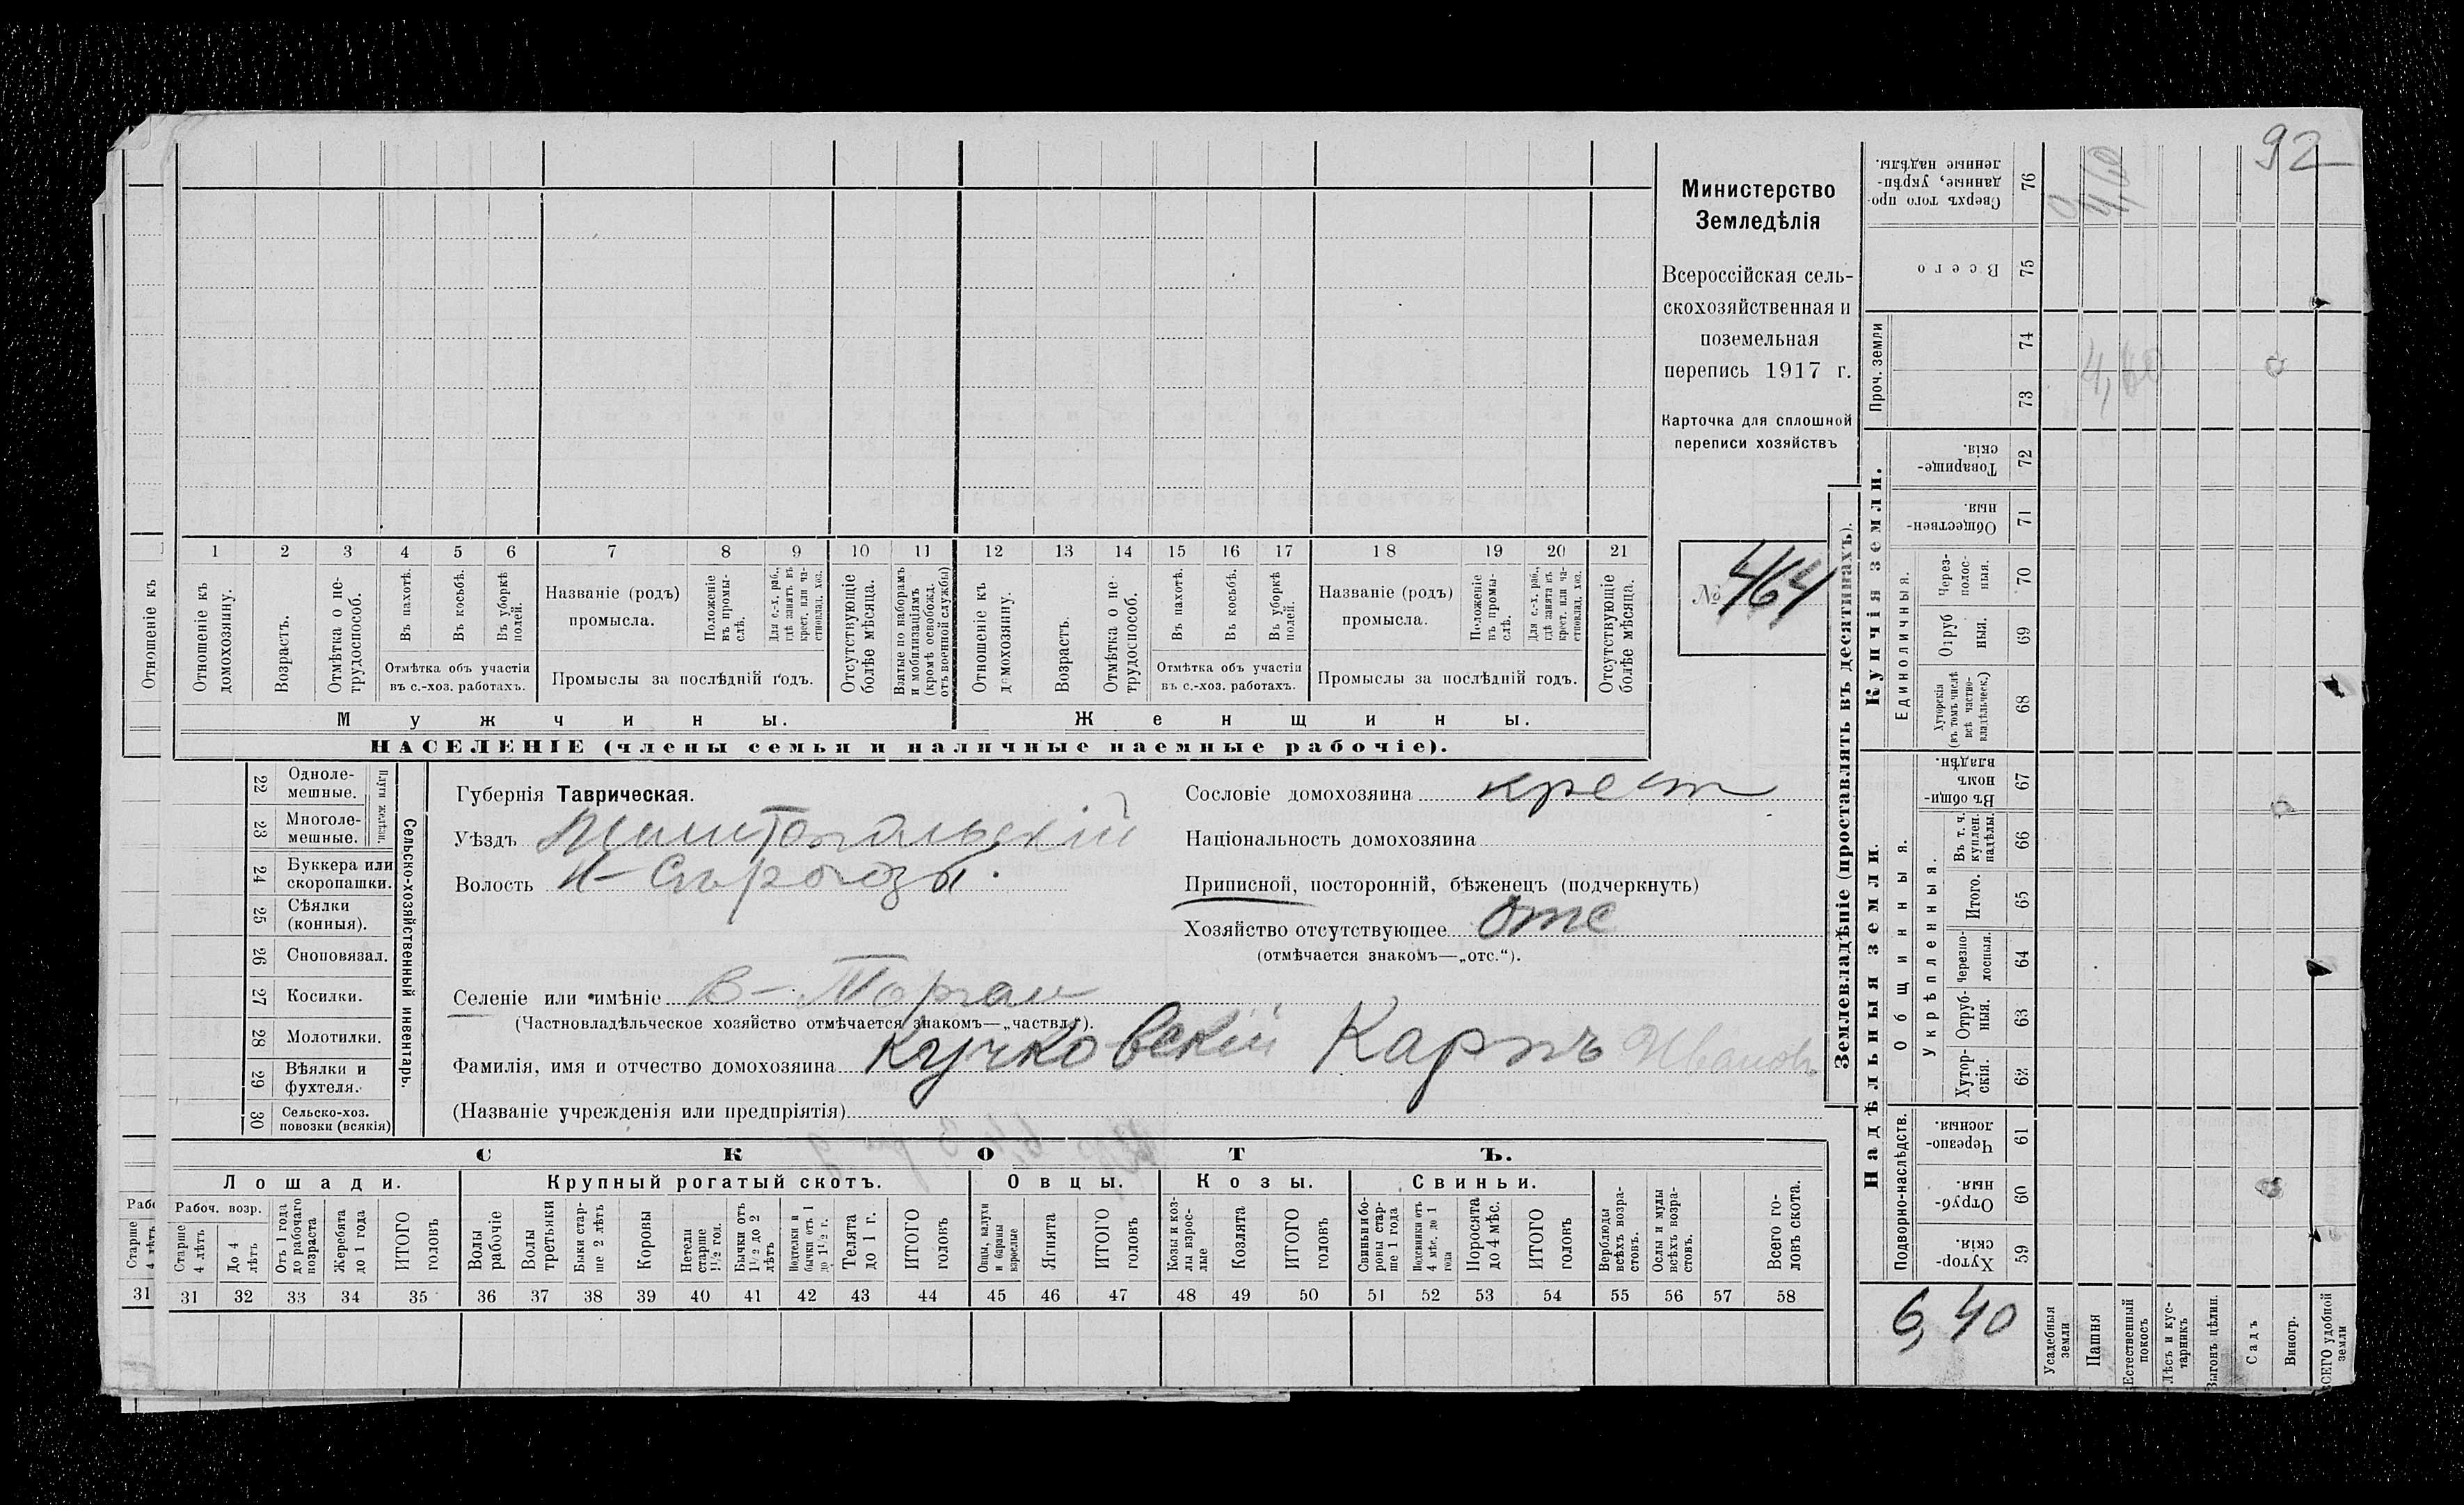 92
Министерство
Земледѣлія
Всероссійская сель-
скохозяйственная и
поземельная
перепись 1917 г.
Карточка для сплошной
переписи хозяйствъ
№ 464
1 2 3 4 5 6 7 8 9 10 11 12 13 14 15 16 17 18 19 20 21
Отношеніе къ
Отношеніе къ домохозяину.
Возрастъ.
Отмѣтка о не-трудоспособ.
Въ пахотѣ.
Въ косьбѣ.
Въ уборкѣ полей.
Отмѣтка объ участіи
въ с.-хоз. работахъ.
Названіе (родъ)
промысла.
Положеніе въ промы-слѣ.
Для с.-х. раб., гдѣ занятъ въ крест. или ча-стновлад. хоз.
Промыслы за послѣдній годъ.
Отсутствующіе болѣе мѣсяца.
Взятые по наборамъ и мобилизаціямъ (кромѣ освобожд. отъ военной службы)
Отношеніе къ домохозяину.
Возрастъ.
Отмѣтка о не-трудоспособ.
Въ пахотѣ.
Въ косьбѣ.
Въ уборкѣ полей.
Отмѣтка объ участіи
въ с.-хоз. работахъ.
Названіе (родъ)
промысла.
Положеніе въ промы-слѣ.
Для с.-х. раб., гдѣ занята въ крест. или ча-стновлад. хоз.
Промыслы за послѣдній годъ.
Отсутствующіе болѣе мѣсяца.
Мужчины.
Женщины.
НАСЕЛЕНІЕ (члены семьи и наличные наемные рабочіе).
22 Одноле-мешные.
23 Многоле-мешные.
Плуги желѣзн.
24 Буккера или скоропашки.
25 Сѣялки (конныя).
26 Сноповязал.
27 Косилки.
28 Молотилки.
29 Вѣялки и фухтеля.
30 Сельско-хоз. повозки (всякія)
Сельско-хозяйственный инвентарь.
Губернія Таврическая.
Уѣздъ Мелитопольскій
Волость Н-Сѣрогозы.
Сословіе домохозяина крест
Національность домохозяина
Приписной, посторонній, бѣженецъ (подчеркнуть)
Хозяйство отсутствующее отс
(отмѣчается знакомъ—„отс.“).
Селеніе или имѣніе В-Торгаи
(Частновладѣльческое хозяйство отмѣчается знакомъ—„частвл.“).
Фамилія, имя и отчество домохозяина Кучковскій Карпъ Иванов
(Названіе учрежденія или предпріятія)
СКОТЪ.
Лошади.
Крупный рогатый скотъ.
Овцы.
Козы.
Свиньи.
Рабоч. возр.
Старше 4 лѣтъ
До 4 лѣтъ
Отъ 1 года до рабочаго возраста
Жеребята до 1 года
ИТОГО головъ
Волы рабочіе
Волы третьяки
Быки стар-ше 2 лѣтъ
Коровы
Нетели старше 1½ год.
Бычки отъ 1½ до 2 лѣтъ
Подтелки и бычки отъ 1 до 1½ г.
Телята до 1 г.
ИТОГО головъ
Овцы, валухи и бараны взрослые
Ягнята
ИТОГО головъ
Козы и коз-лы взрос-лые
Козлята
ИТОГО головъ
Свиньи и бо-ровы стар-ше 1 года
Подсвинки отъ 4 мѣс. до 1 года
Поросята до 4 мѣс.
ИТОГО головъ
Верблюды всѣхъ возра-стовъ.
Ослы и мулы всѣхъ возра-стовъ.
Всего го-ловъ скота.
31 31 32 33 34 35 36 37 38 39 40 41 42 43 44 45 46 47 48 49 50 51 52 53 54 55 56 57 58
Землевладѣніе (проставлять въ десятинахъ).
Купчія земли.
Надѣльныя земли.
Сверхъ того про-данные, укрѣп-ленные надѣлы. 76
Всего 75
Проч. земли 74 73
Товарище-скія. 72
Обществен-ныя. 71
Единоличныя.
Через-полос-ныя. 70
Отруб-ныя. 69
Хуторскія (въ томъ числѣ всѣ частно-владѣльческ.) 68
Общинныя.
Въ общи-номъ владѣн. 67
Укрѣпленныя.
Въ т. ч. куплен. надѣлы. 66
Итого. 65
Черезпо-лосныя. 64
Отруб-ныя. 63
Хутор-скія. 62
Подворно-наслѣдств.
Черезпо-лосныя. 61
Отруб-ныя. 60
Хутор-скія. 59
4,60
4,60
6,40
Усадебныя земли
Пашня
Естественный покосъ
Лѣсъ и кус-тарникъ
Выгонъ цѣлин.
Садъ
Виногр.
ВСЕГО удобной земли